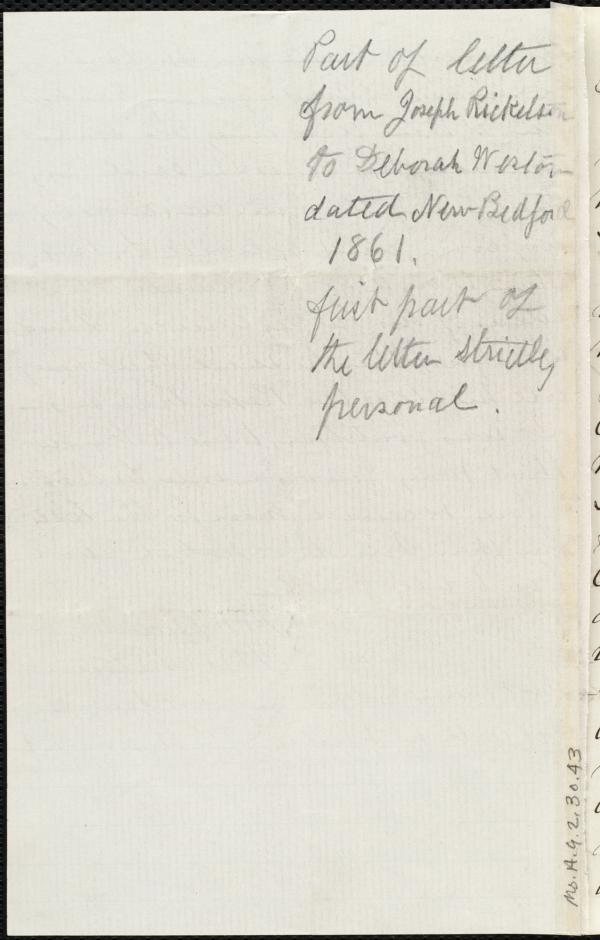 Part of letter
from Joseph Rickelson
to Deborah Weston
dated New Bedford
1861.
first part of
the letter strictly
personal.
Ms.A.9.2.30.43